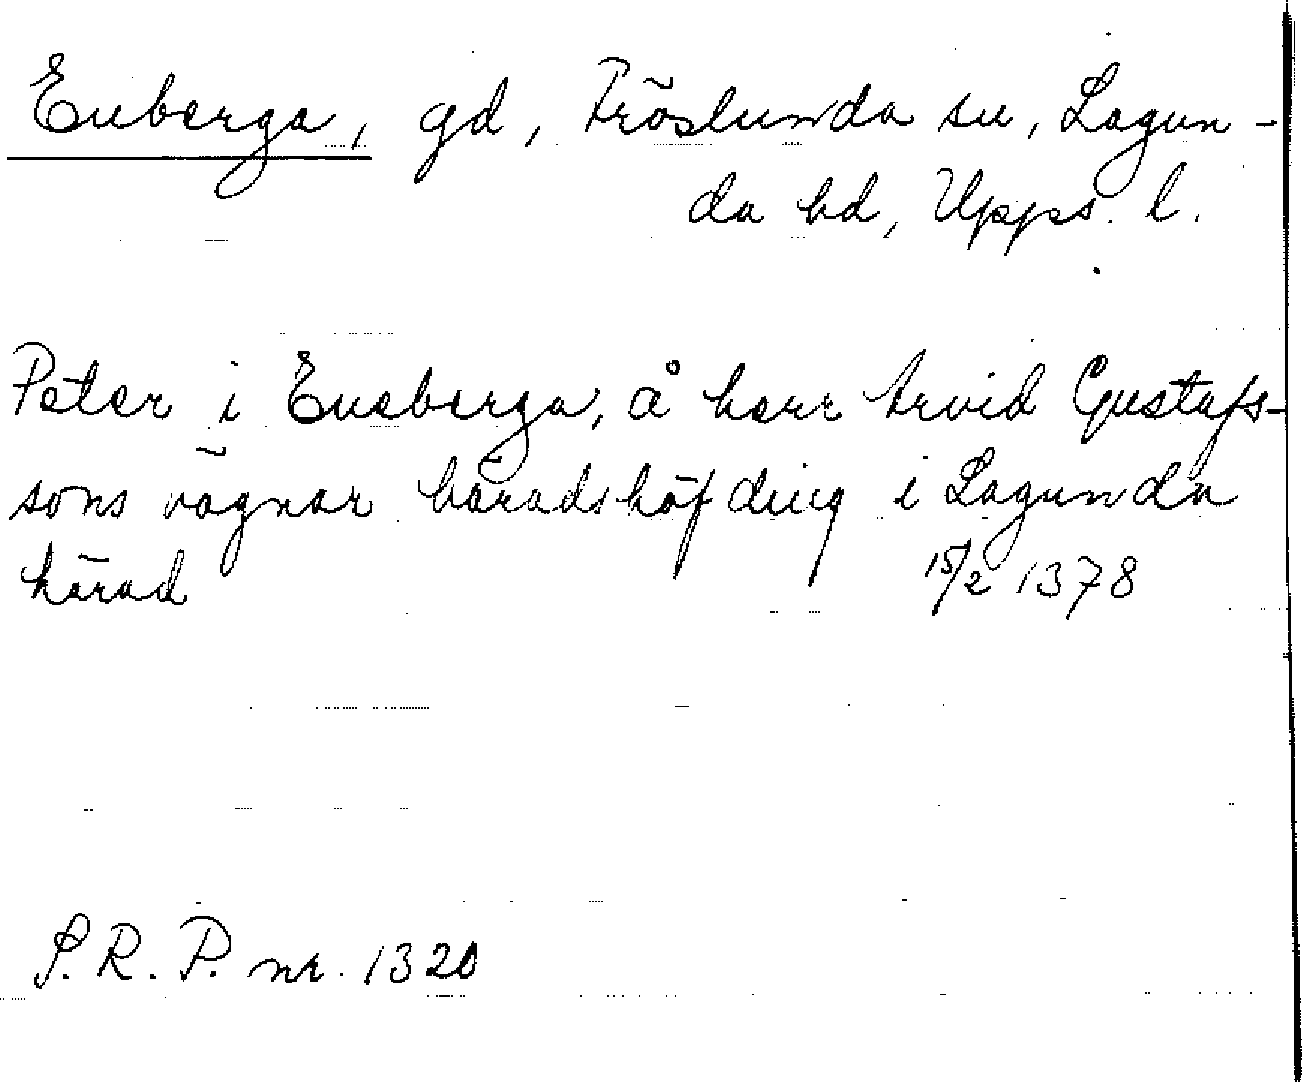 Enberga, gd, Fröslunda sn, Lagun-
da hd, Upps. l.
Peter i Eneberga, å herr Arvid Gustafs-
sons vägnar häradshöfding i Lagunda
härad 15/2 1378
S.R.P. nr. 1320